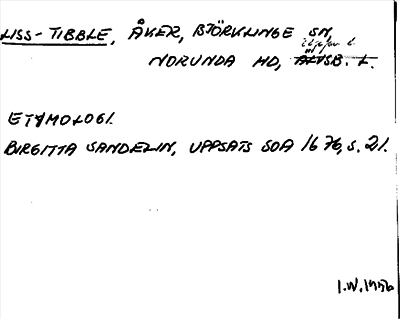 LISS-TIBBLE, ÅKER, BJÖRKLINGE SN,
NORUNDA HD, ÄLVSB. L.
ETYMOLOGI.
BIRGITTA SANDELIN, UPPSATS SOA 1676, S. 21.
I.W. 1996